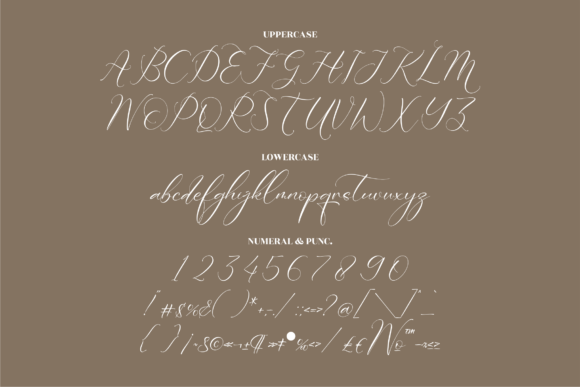 UPPERCASE
A B C D E F G H I J K L M
N O P Q R S T U V W X Y Z
LOWERCASE
abcdefghijklmnopqrstuvwxyz
NUMERAL & PUNC.
1 2 3 4 5 6 7 8 9 0
! " # $ % & ( ) * + , - . / : ; < = > ? @ [ \ ] ^ _
{ } | • / £ € № ™